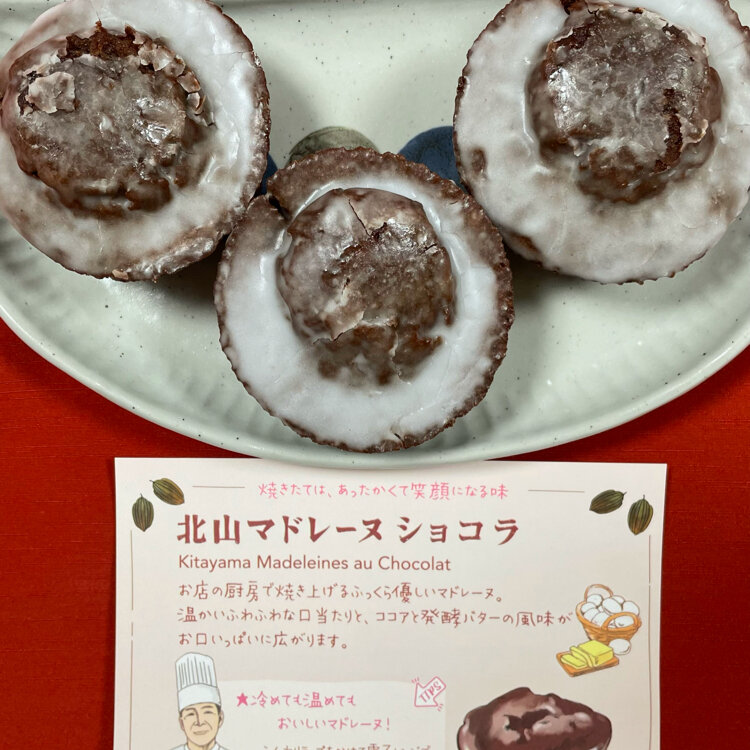 焼きたては、あったかくて笑顔になる味
北山マドレーヌ ショコラ
Kitayama Madeleines au Chocolat
お店の厨房で焼き上げるふっくら優しいマドレーヌ。
温かいふわふわな口当たりと、ココアと発酵バターの風味が
お口いっぱいに広がります。
TIPS
★冷めても温めても
おいしいマドレーヌ!